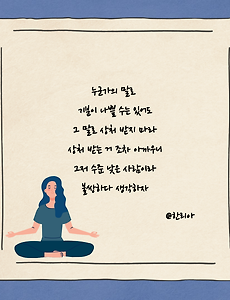 누군가의 말로
기분이 나쁠 수는 있어도
그 말로 상처 받지 마라
상처 받는 거 조차 아까우니
그저 수준 낮은 사람이라
불쌍하다 생각하자
@한리아